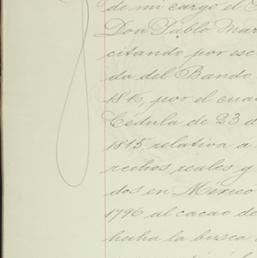 de mi cargo el
Don Pablo Mar
citando por esc
da del Bando
181, por el cua
Cédula de 23 d
1815 relativa a
recibos reales y
dos en México
1796 al cacao de
hecha la busca